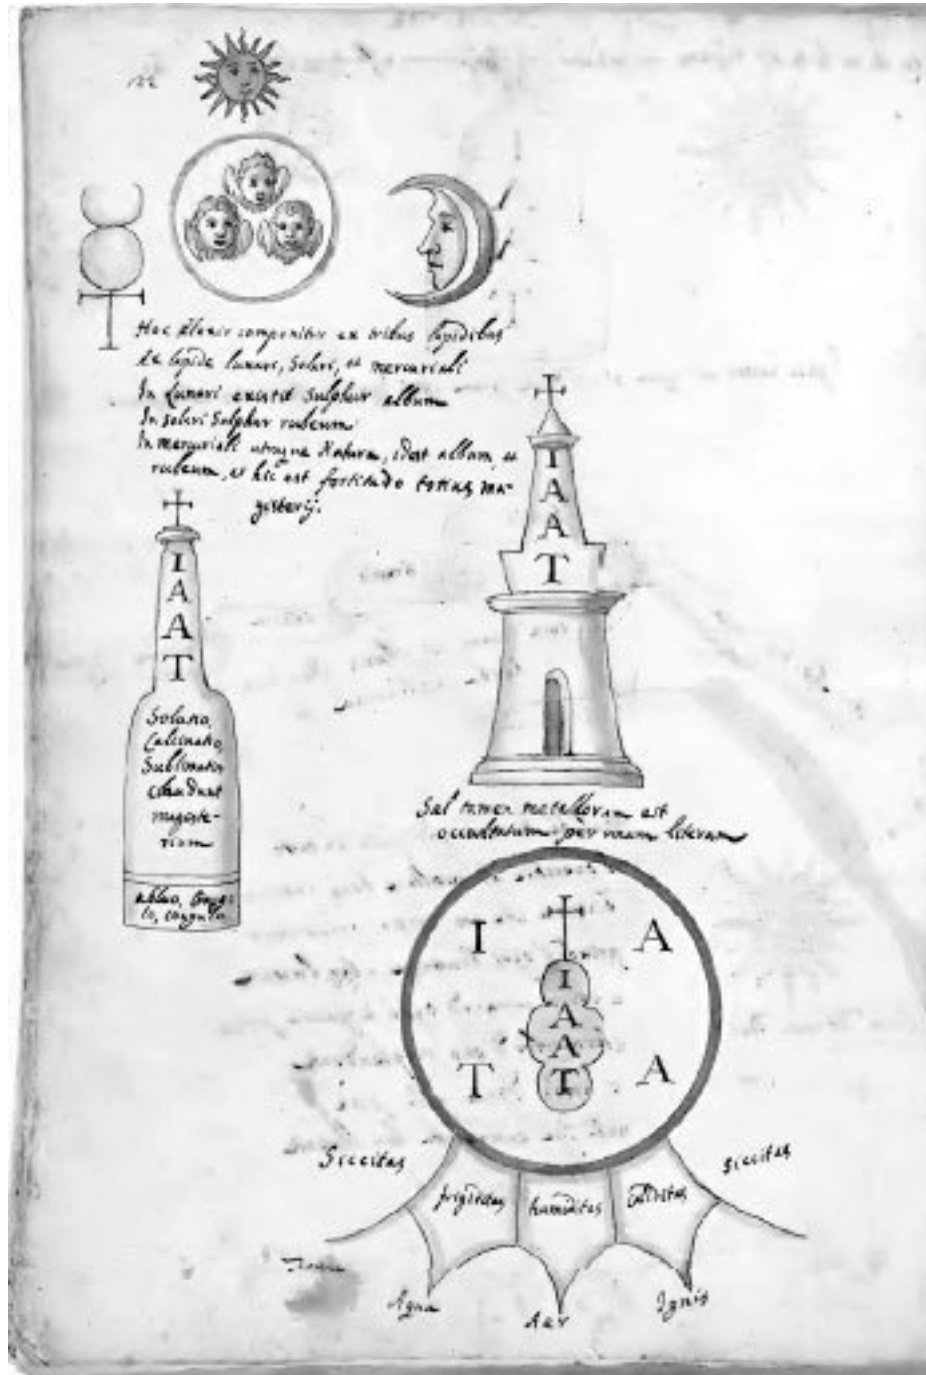 122
Hoc Elixir componitur ex tribus lapidibus
ex lapide lunari, solari, et mercuriali
In Lunari existit Sulphur album
In solari Sulphur rubeum
In mercuriali utraque Natura, idest album, et
rubeum, et hic est fortitudo totius ma-
gisterij.
I
A
A
T
I
A
A
T
Solutio,
Calcinatio,
Sublimatio
claudunt
magiste-
rium
abluo,
Sal tamen metallorum est
occultatum per unam literam
I A
I
A
A
T
T A
Siccitas Siccitas
frigiditas humiditas caliditas
Terra
Aqua Aer Ignis